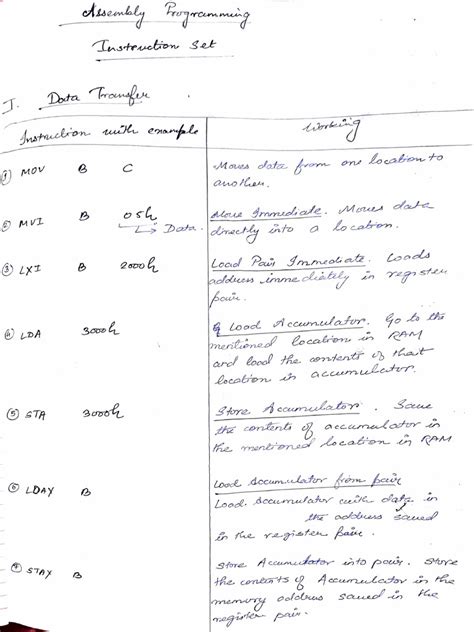 Assembly Programming
Instruction Set
I. Data Transfer
Instruction with example
Working
① MOV B C
Moves data from one location to
another.
② MVI B 05h
Data.
Move Immediate. Moves data
directly into a location.
③ LXI B 2000h
Load Pair Immediate. Loads
address immediately in register
pair.
④ LDA 3000h
Load Accumulator. Go to the
mentioned location in RAM
and load the contents of that
location in accumulator.
⑤ STA 3000h
Store Accumulator. Save
the contents of accumulator in
the mentioned location in RAM
⑥ LDAX B
Load Accumulator from pair
Load Accumulator with data in
the address saved
in the register pair.
⑦ STAX B
Store Accumulator into pair. Store
the contents of Accumulator in the
memory address saved in the
register pair.